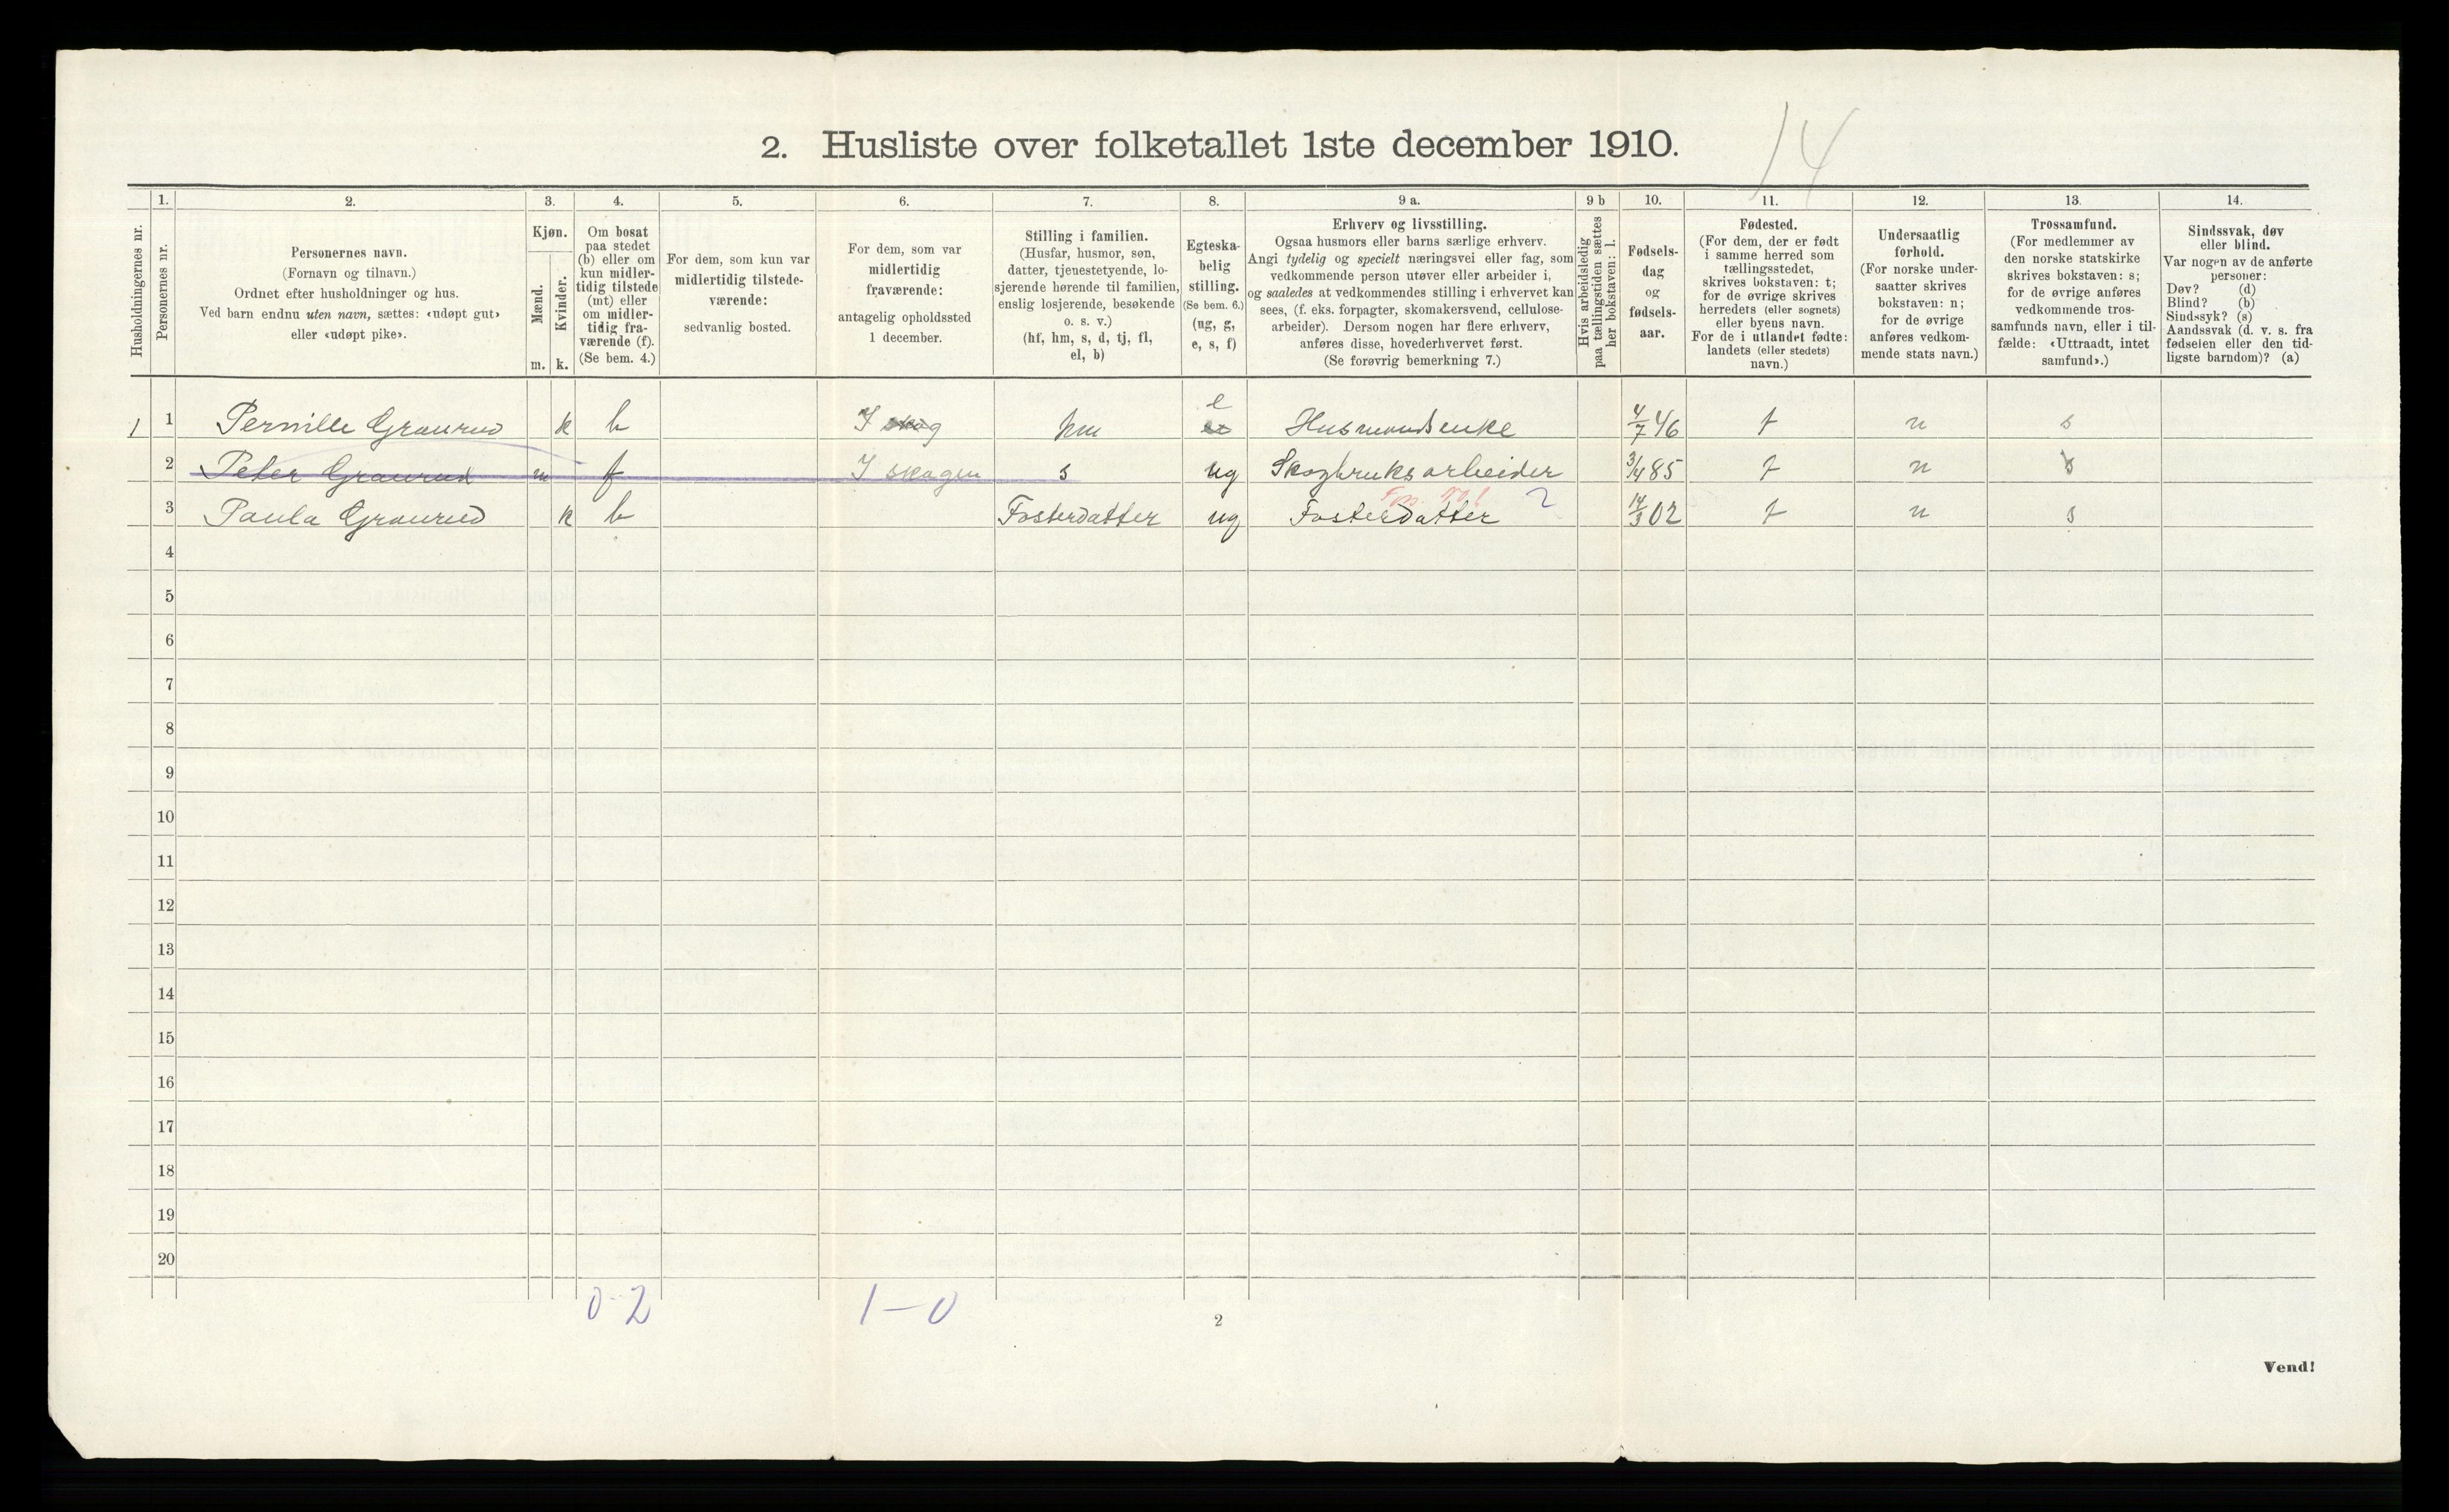 14
2. Husliste over folketallet 1ste december 1910.
1. 2. 3. 4. 5. 6. 7. 8. 9 a. 9 b 10. 11. 12. 13. 14.
Husholdningernes nr.
Personernes nr.
Personernes navn.
(Fornavn og tilnavn.)
Ordnet efter husholdninger og hus.
Ved barn endnu uten navn, sættes: «udøpt gut»
eller «udøpt pike».
Kjøn.
Mænd.
m.
Kvinder.
k.
Om bosat
paa stedet
(b) eller om
kun midler-
tidig tilstede
(mt) eller
om midler-
tidig fra-
værende (f).
(Se bem. 4.)
For dem, som kun var
midlertidig tilstede-
værende:
sedvanlig bosted.
For dem, som var
midlertidig
fraværende:
antagelig opholdssted
1 december.
Stilling i familien.
(Husfar, husmor, søn,
datter, tjenestetyende, lo-
sjerende hørende til familien,
enslig losjerende, besøkende
o. s. v.)
(hf, hm, s, d, tj, fl,
el, b)
Egteska-
belig
stilling.
(Se bem. 6.)
(ug, g,
e, s, f)
Erhverv og livsstilling.
Ogsaa husmors eller barns særlige erhverv.
Angi tydelig og specielt næringsvei eller fag, som
vedkommende person utøver eller arbeider i,
og saaledes at vedkommendes stilling i erhvervet kan
sees, (f. eks. forpagter, skomakersvend, cellulose-
arbeider). Dersom nogen har flere erhverv,
anføres disse, hovederhvervet først.
(Se forøvrig bemerkning 7.)
Hvis arbeidsledig
paa tællingstiden sættes
her bokstaven: l.
Fødsels-
dag
og
fødsels-
aar.
Fødested.
(For dem, der er født
i samme herred som
tællingsstedet,
skrives bokstaven: t;
for de øvrige skrives
herredets (eller sognets)
eller byens navn.
For de i utlandet fødte:
landets (eller stedets)
navn.)
Undersaatlig
forhold.
(For norske under-
saatter skrives
bokstaven: n;
for de øvrige
anføres vedkom-
mende stats navn.)
Trossamfund.
(For medlemmer av
den norske statskirke
skrives bokstaven: s;
for de øvrige anføres
vedkommende tros-
samfunds navn, eller i til-
fælde: «Uttraadt, intet
samfund».)
Sindssvak, døv
eller blind.
Var nogen av de anførte
personer:
Døv? (d)
Blind? (b)
Sindssyk? (s)
Aandssvak (d. v. s. fra
fødselen eller den tid-
ligste barndom)? (a)
1 1 Pernille Graurud k b I skog hm e Husmandsenke 4/7 46 t n s
2 Peter Graurud m f I skogen s ug Skogbruksarbeider 3/4 85 t n s
3 Paula Graurud k b Fosterdatter ug Fosterdatter 2 14/3 02 t n s
4
5
6
7
8
9
10
11
12
13
14
15
16
17
18
19
20
0-2 1-0
2
Vend!